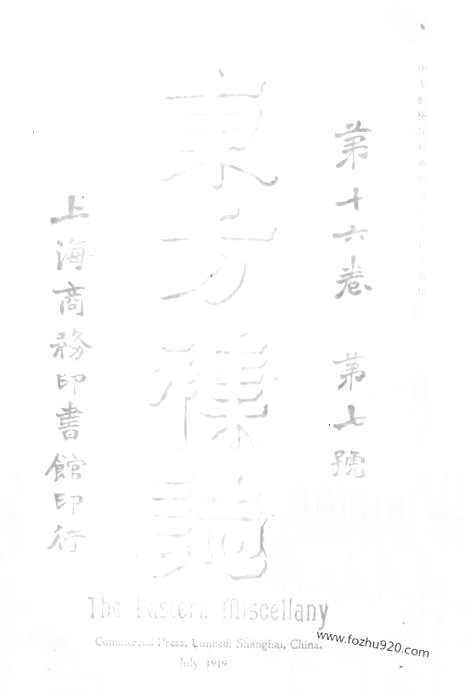 第十六卷 第七號
東方雜誌
上海商務印書館印行
The Eastern Miscellany
Commercial Press, Limited, Shanghai, China.
July 1919
www.fozhu920.com